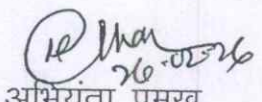 26-02-26
अभियंता प्रमुख